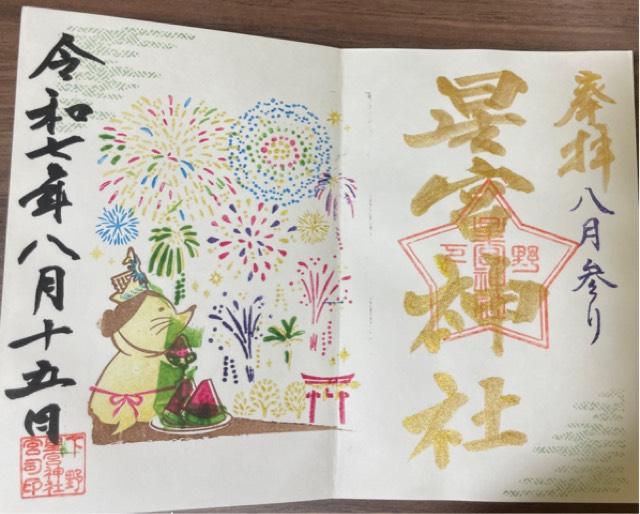 奉拝
八月参り
星宮神社
下野
星宮神社
令和七年八月十五日
下野
星宮神社
宮司印